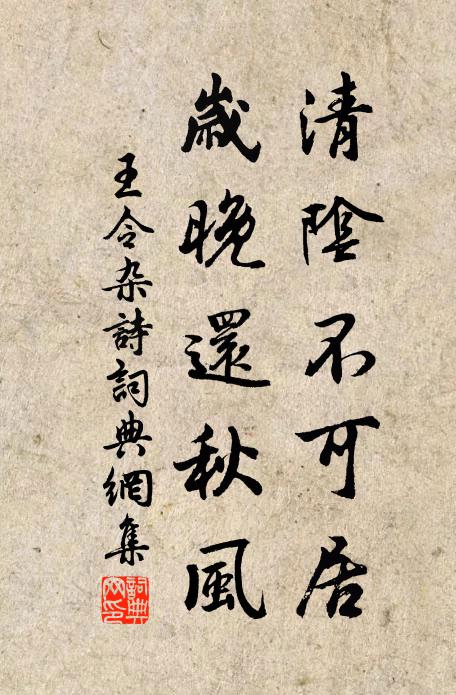 清陰不可居
歲晚還秋風
王令杂詩詞典網集
詞典網印